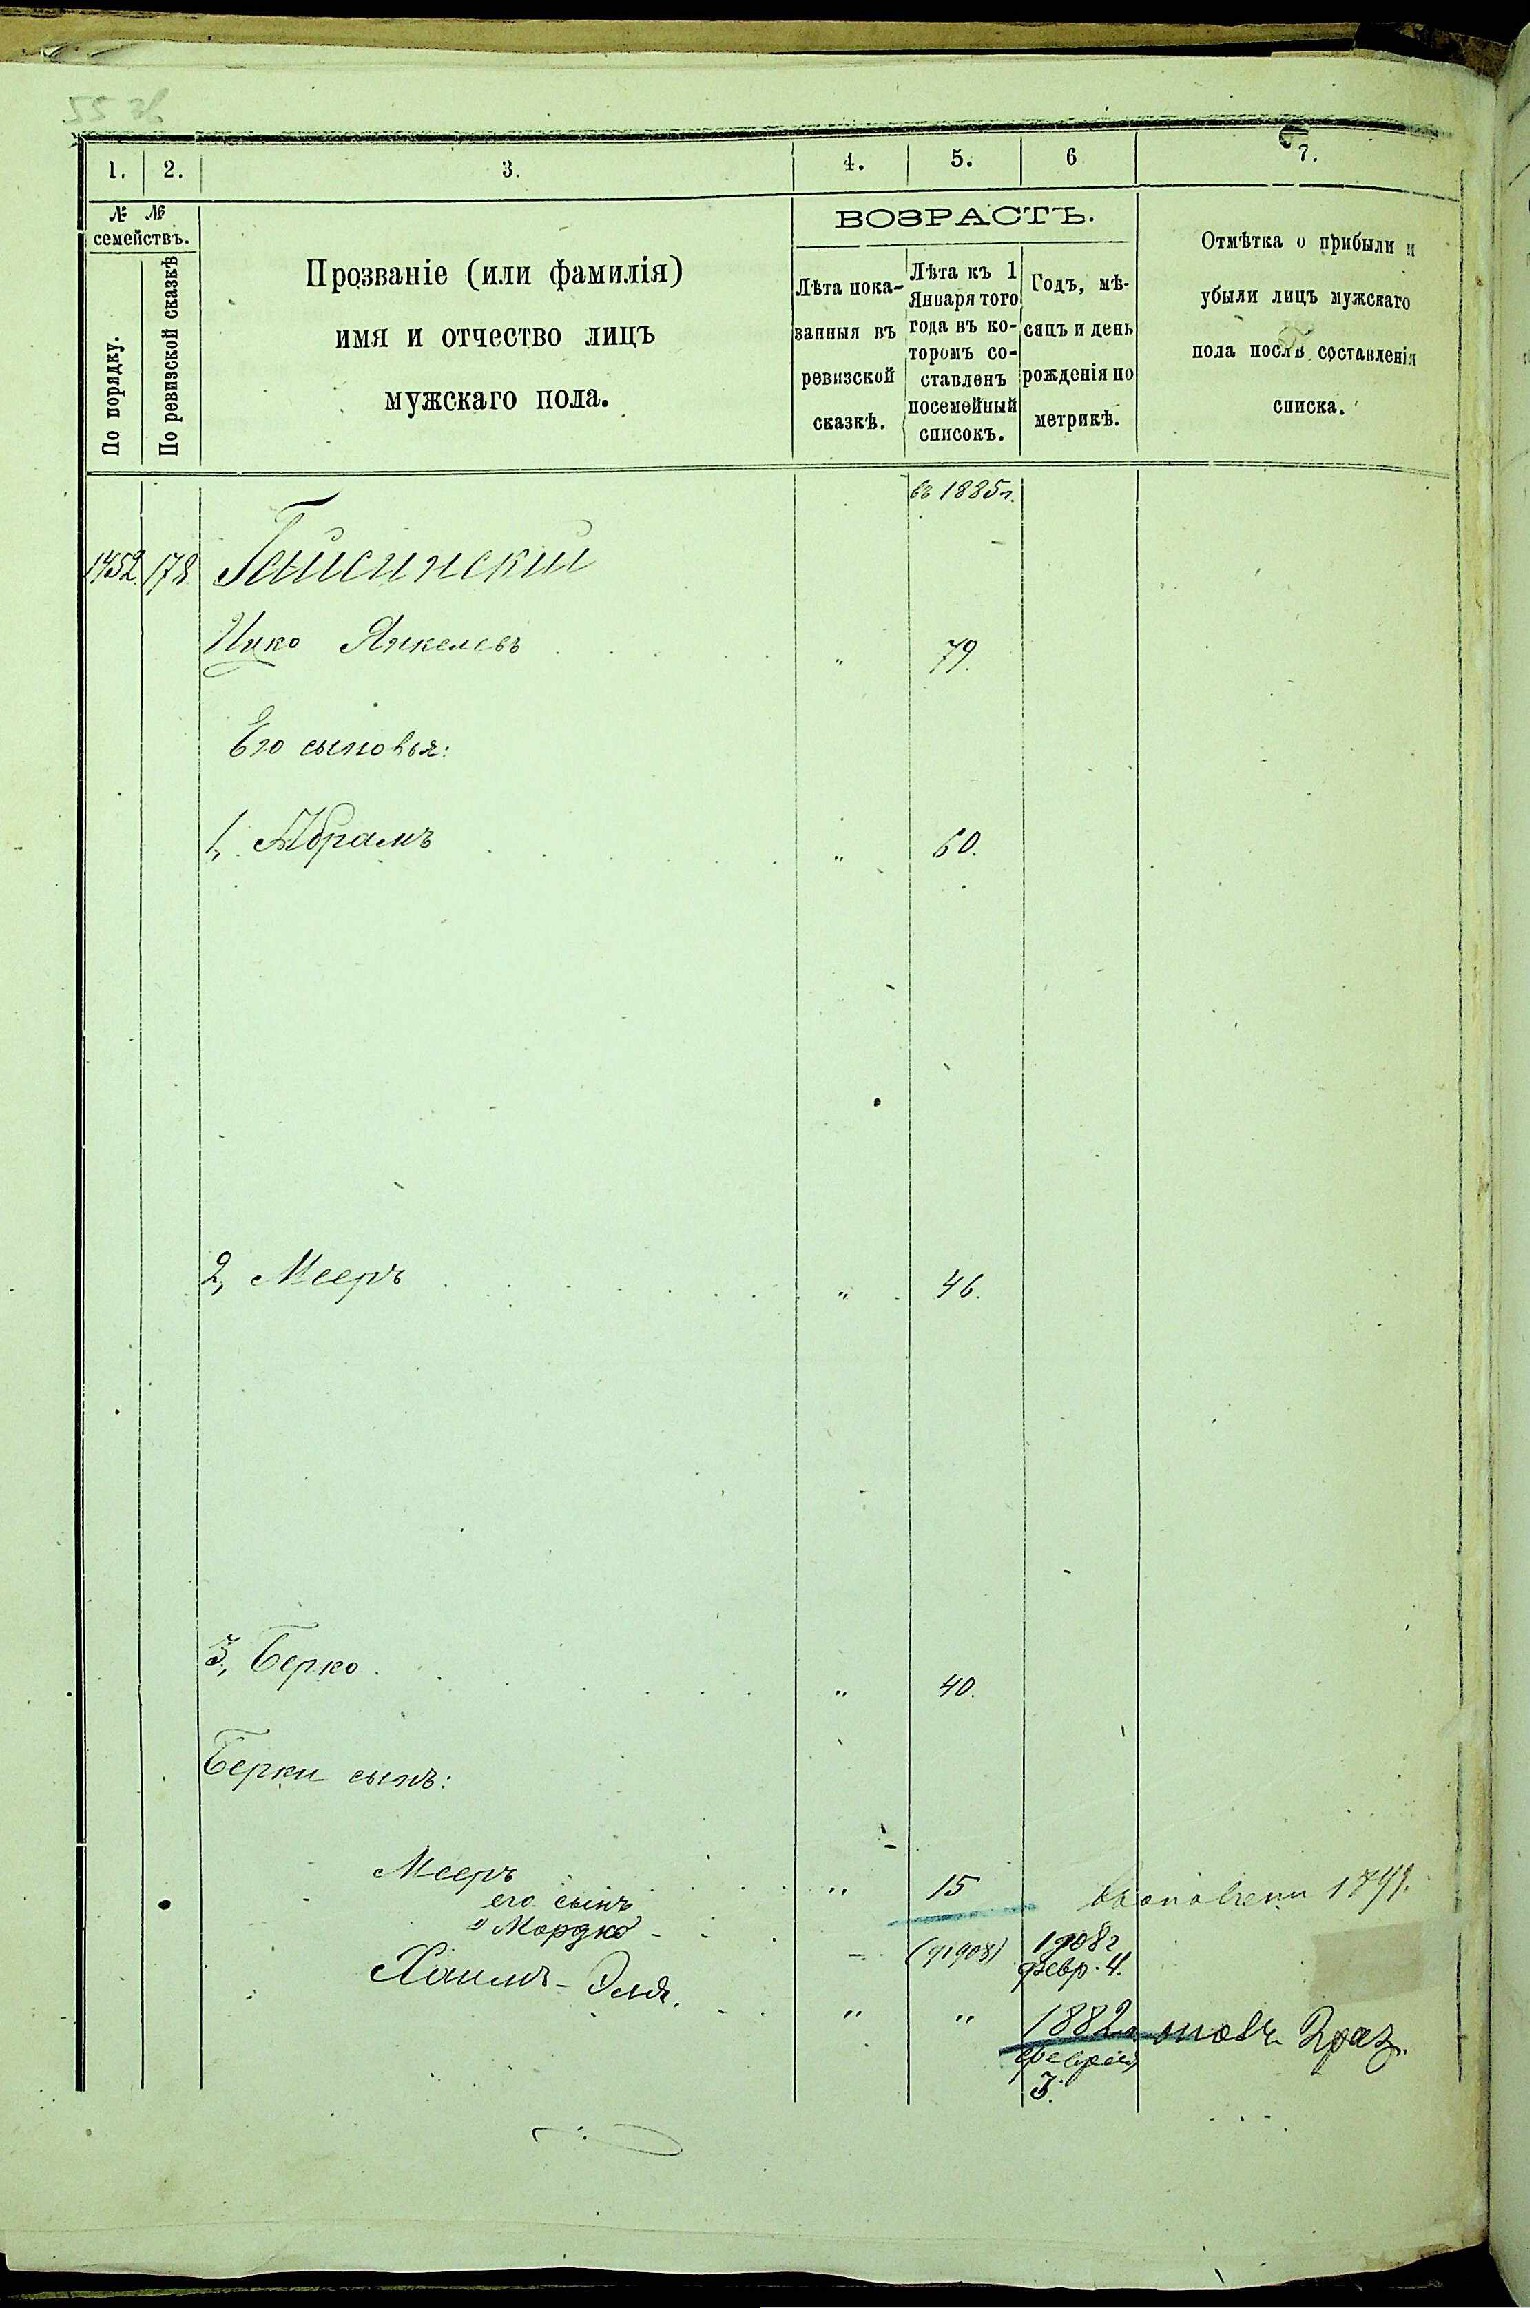 1. 2. 3. 4. 5. 6 7.
№ №
семействъ.
По порядку.
По ревизской сказкѣ
Прозваніе (или фамилія)
имя и отчество лицъ
мужскаго пола.
ВОЗРАСТЪ.
Лѣта пока-
занныя въ
ревизской
сказкѣ.
Лѣта къ 1
Января того
года въ ко-
торомъ со-
ставленъ
посемейный
списокъ.
Годъ, мѣ-
сяцъ и день
рожденія по
метрикѣ.
Отмѣтка о прибыли и
убыли лицъ мужскаго
пола послѣ составленія
списка.
въ 1885 г.
1452. 178 Гайсинский
Ицко Янкелевъ " 79.
Его сыновья:
1, Абрамъ " 60.
2, Мееръ " 46.
3, Берко " 40.
Берки сынъ:
Мееръ " 15
его сынъ
" Мордко - (1908) 1908 г
февр. 4.
Хаимъ-Эля. " " 1882 г.
февраля
3.